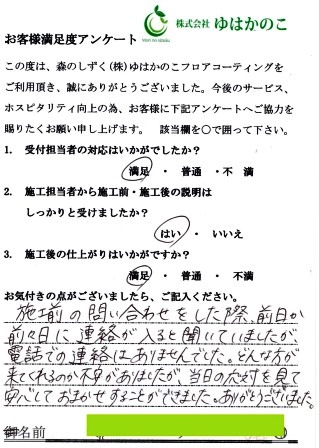 株式会社 ゆはかのこ
お客様満足度アンケート
この度は、森のしずく(株)ゆはかのこフロアコーティングを
ご利用頂き、誠にありがとうございました。今後のサービス、
ホスピタリティ向上の為、お客様に下記アンケートへご協力を
賜りたくお願い申し上げます。 該当欄を〇で囲って下さい。
1. 受付担当者の対応はいかがでしたか?
満足 ・ 普通 ・ 不 満
2. 施工担当者から施工前・施工後の説明は
しっかりと受けましたか?
はい ・ いいえ
3. 施工後の仕上がりはいかがですか?
満足 ・ 普通 ・ 不満
お気付きの点がございましたら、ご記入ください。
施工前の問い合わせをした際、前日か
前々日に連絡が入ると聞いていましたが、
電話での連絡はありませんでした。どんな方が
来てくれるのか不安がありましたが、当日の対応を見て
安心しておまかせすることができました。ありがとうございました。
御名前